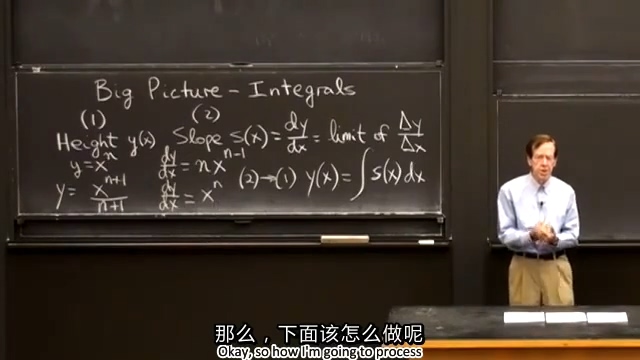 Big Picture - Integrals
(1) (2)
Height y(x) Slope s(x) = dy/dx = limit of Δy/Δx
y = x^n dy/dx = nx^(n-1)
y = x^(n+1)/(n+1) dy/dx = x^n (2)→(1) y(x) = ∫ s(x) dx
那么，下面该怎么做呢
Okay, so how I'm going to process